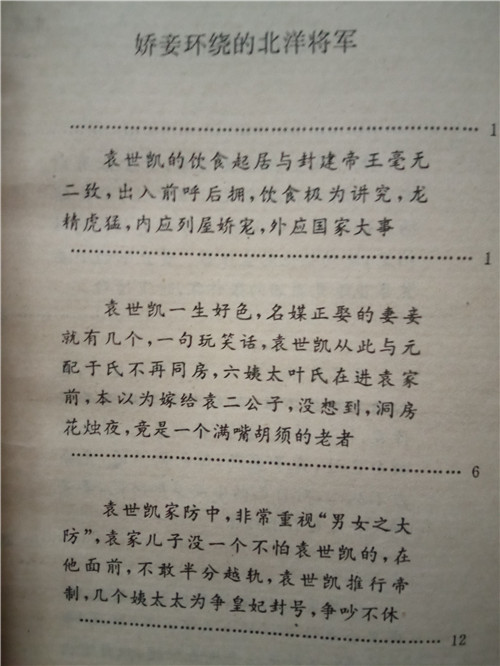 娇妾环绕的北洋将军
…………………………………………………… 1
袁世凯的饮食起居与封建帝王毫无
二致，出入前呼后拥，饮食极为讲究，龙
精虎猛，内应列屋娇宠，外应国家大事
…………………………………………………… 1
袁世凯一生好色，名媒正娶的妻妾
就有几个，一句玩笑话，袁世凯从此与元
配于氏不再同房，六姨太叶氏在进袁家
前，本以为嫁给袁二公子，没想到，洞房
花烛夜，竟是一个满嘴胡须的老者
…………………………………………………… 6
袁世凯家防中，非常重视“男女之大
防”，袁家儿子没一个不怕袁世凯的，在
他面前，不敢半分越轨，袁世凯推行帝
制，几个姨太太为争皇妃封号，争吵不休
…………………………………………………… 12